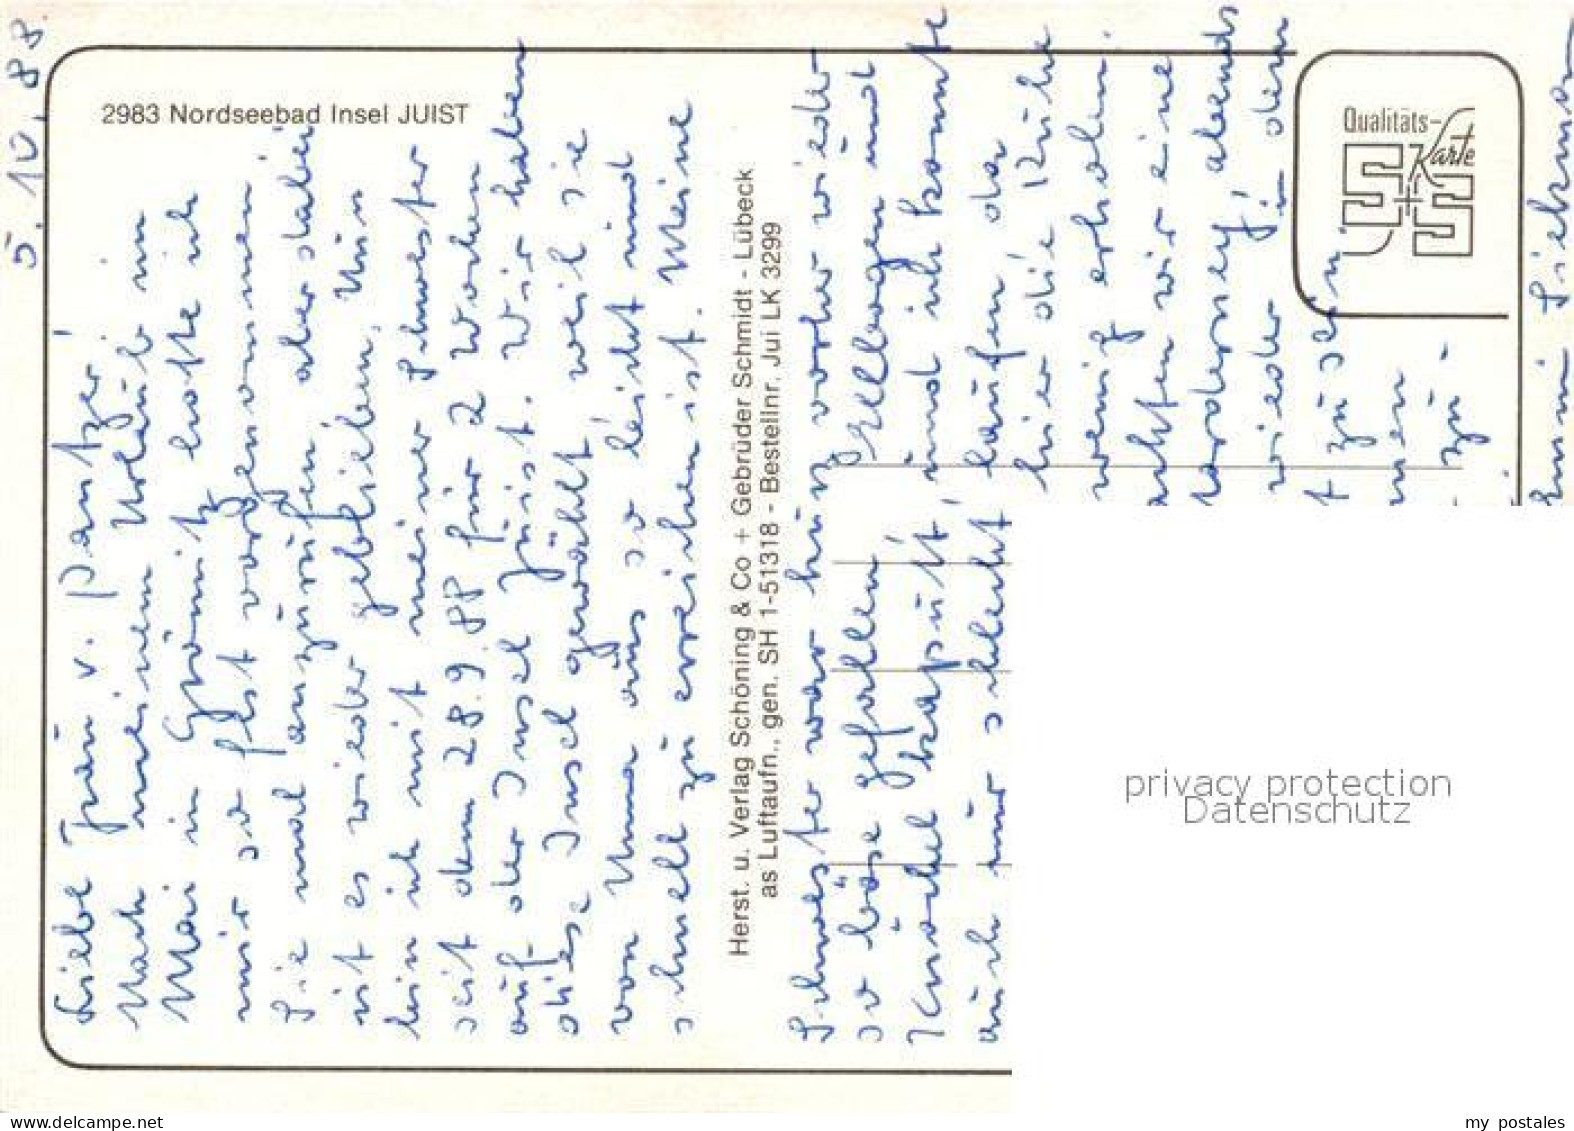 5.10.88
2983 Nordseebad Insel JUIST
Liebe Frau v. Pantzer!
Nach meinem Urlaub im
Mai in Grömitz hatte ich
mir so fest vorgenommen
Sie mal anzurufen, aber dabei
ist es wieder geblieben. Nun
bin ich mit meiner Schwester
seit dem 28.9.88 für 2 Wochen
auf der Insel Juist. Wir haben
diese Insel gewählt, weil sie
von Unna aus so leicht und
schnell zu erreichen ist. Meine
Herst. u. Verlag Schöning & Co + Gebrüder Schmidt - Lübeck
as Luftaufn., gen. SH 1-51318 - Bestellnr. Jui LK 3299
Schwester war kurz vorher wieder
so böse gefallen, Ellbogen und
Knöchel kaputt, und ich konnte
auch nur schlecht laufen, da
hier die Ruhe
wenig erholen.
wir eine
abends
wieder in den
t zu sein
men
zu-
Qualitäts-
Karte
S+S
privacy protection
Datenschutz
www.delcampe.net
my postales